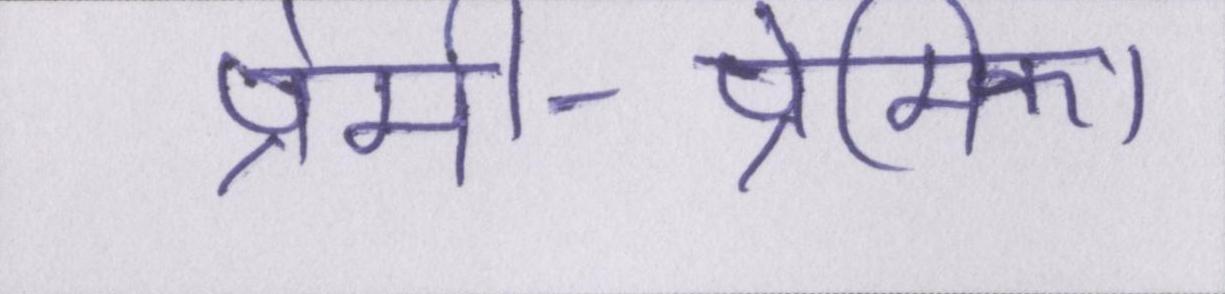 प्रेमी-प्रेमिका